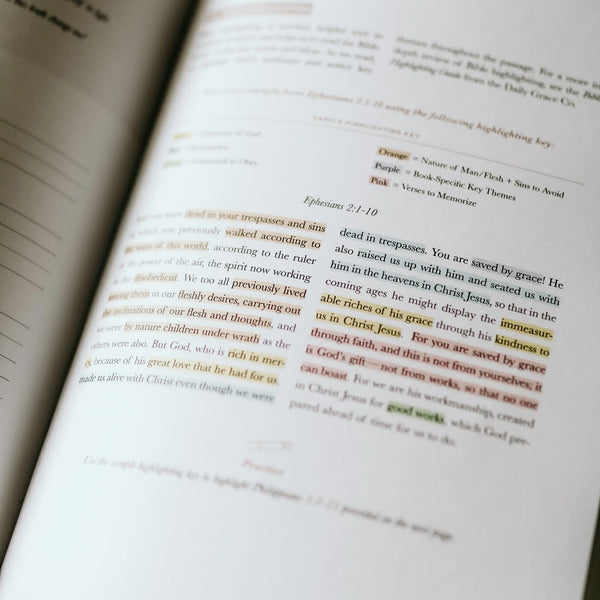 themes throughout the passage. For a more in
depth review of Bible highlighting, see the Bible
Highlighting Guide from the Daily Grace Co.
example from Ephesians 2:1-10 using the following highlighting key:
SAMPLE HIGHLIGHTING KEY
= Character of God
= Commands to Obey
Orange = Nature of Man/Flesh + Sins to Avoid
Purple = Book-Specific Key Themes
Pink = Verses to Memorize
Ephesians 2:1-10
you were dead in your trespasses and sins
in which you previously walked according to
the ways of this world, according to the ruler
of the power of the air, the spirit now working
in the disobedient. We too all previously lived
among them in our fleshly desires, carrying out
the inclinations of our flesh and thoughts, and
we were by nature children under wrath as the
others were also. But God, who is rich in mer-
cy, because of his great love that he had for us,
made us alive with Christ even though we were
dead in trespasses. You are saved by grace! He
also raised us up with him and seated us with
him in the heavens in Christ Jesus, so that in the
coming ages he might display the immeasur-
able riches of his grace through his kindness to
us in Christ Jesus. For you are saved by grace
through faith, and this is not from yourselves; it
is God's gift—not from works, so that no one
can boast. For we are his workmanship, created
in Christ Jesus for good works, which God pre-
pared ahead of time for us to do.
Practice
Use the sample highlighting key to highlight Philippians 1:1-11 provided on the next page.